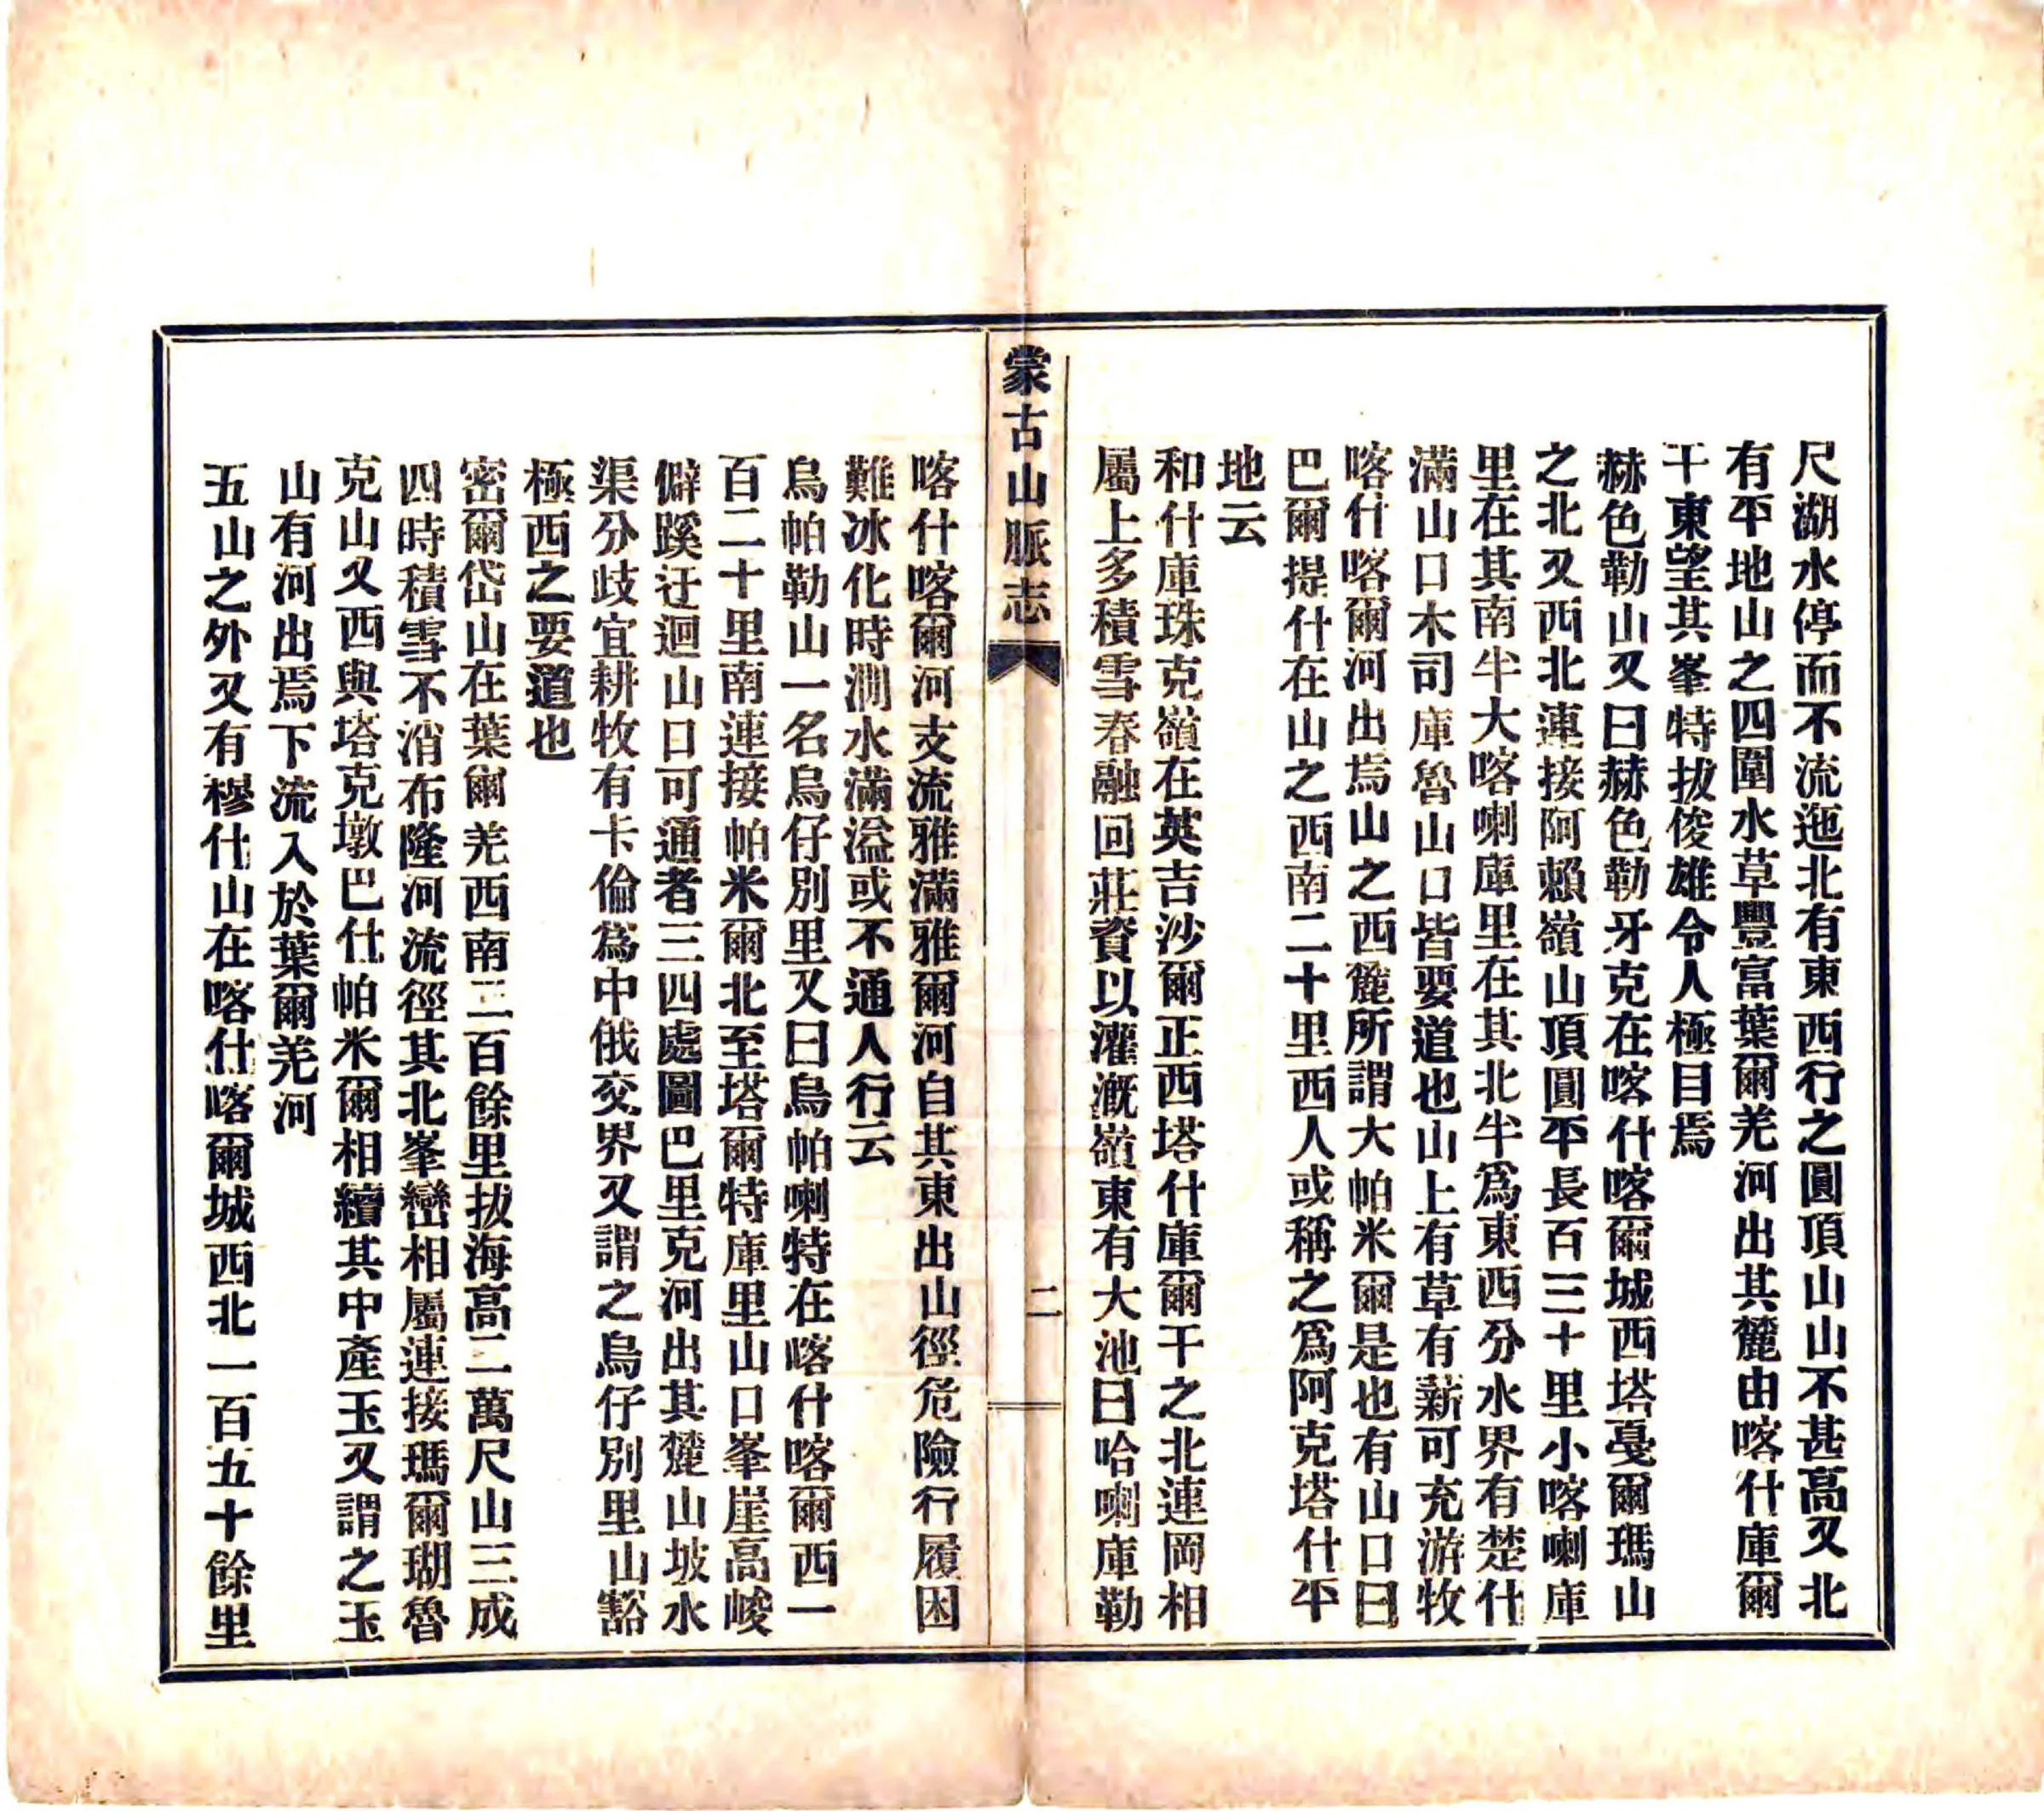 尺湖水停而不流迤北有東西行之圓頂山山不甚高又北
有平地山之四圍水草豐富葉爾羌河出其麓由喀什庫爾
干東望其峯特拔俊雄令人極目焉
赫色勒山又曰赫色勒牙克在喀什喀爾城西塔戞爾瑪山
之北又西北連接阿賴嶺山頂圓平長百三十里小喀喇庫
里在其南半大喀喇庫里在其北半爲東西分水界有楚什
滿山口木司庫魯山口皆要道也山上有草有薪可充游牧
喀什喀爾河出焉山之西麓所謂大帕米爾是也有山口曰
巴爾提什在山之西南二十里西人或稱之爲阿克塔什平
地云
和什庫珠克嶺在英吉沙爾正西塔什庫爾干之北連岡相
屬上多積雪春融回莊資以灌漑嶺東有大池曰哈喇庫勒
蒙古山脈志
二
喀什喀爾河支流雅滿雅爾河自其東出山徑危險行履困
難冰化時澗水滿溢或不通人行云
烏帕勒山一名烏仔別里又曰烏帕喇特在喀什喀爾西一
百二十里南連接帕米爾北至塔爾特庫里山口峯崖高峻
僻蹊迂迴山口可通者三四處圖巴里克河出其麓山坡水
渠分歧宜耕牧有卡倫爲中俄交界又謂之烏仔別里山豁
極西之要道也
密爾岱山在葉爾羌西南二百餘里拔海高二萬尺山三成
四時積雪不消布隆河流徑其北峯巒相屬連接瑪爾瑚魯
克山又西與塔克墩巴什帕米爾相續其中產玉又謂之玉
山有河出焉下流入於葉爾羌河
五山之外又有穆什山在喀什喀爾城西北一百五十餘里